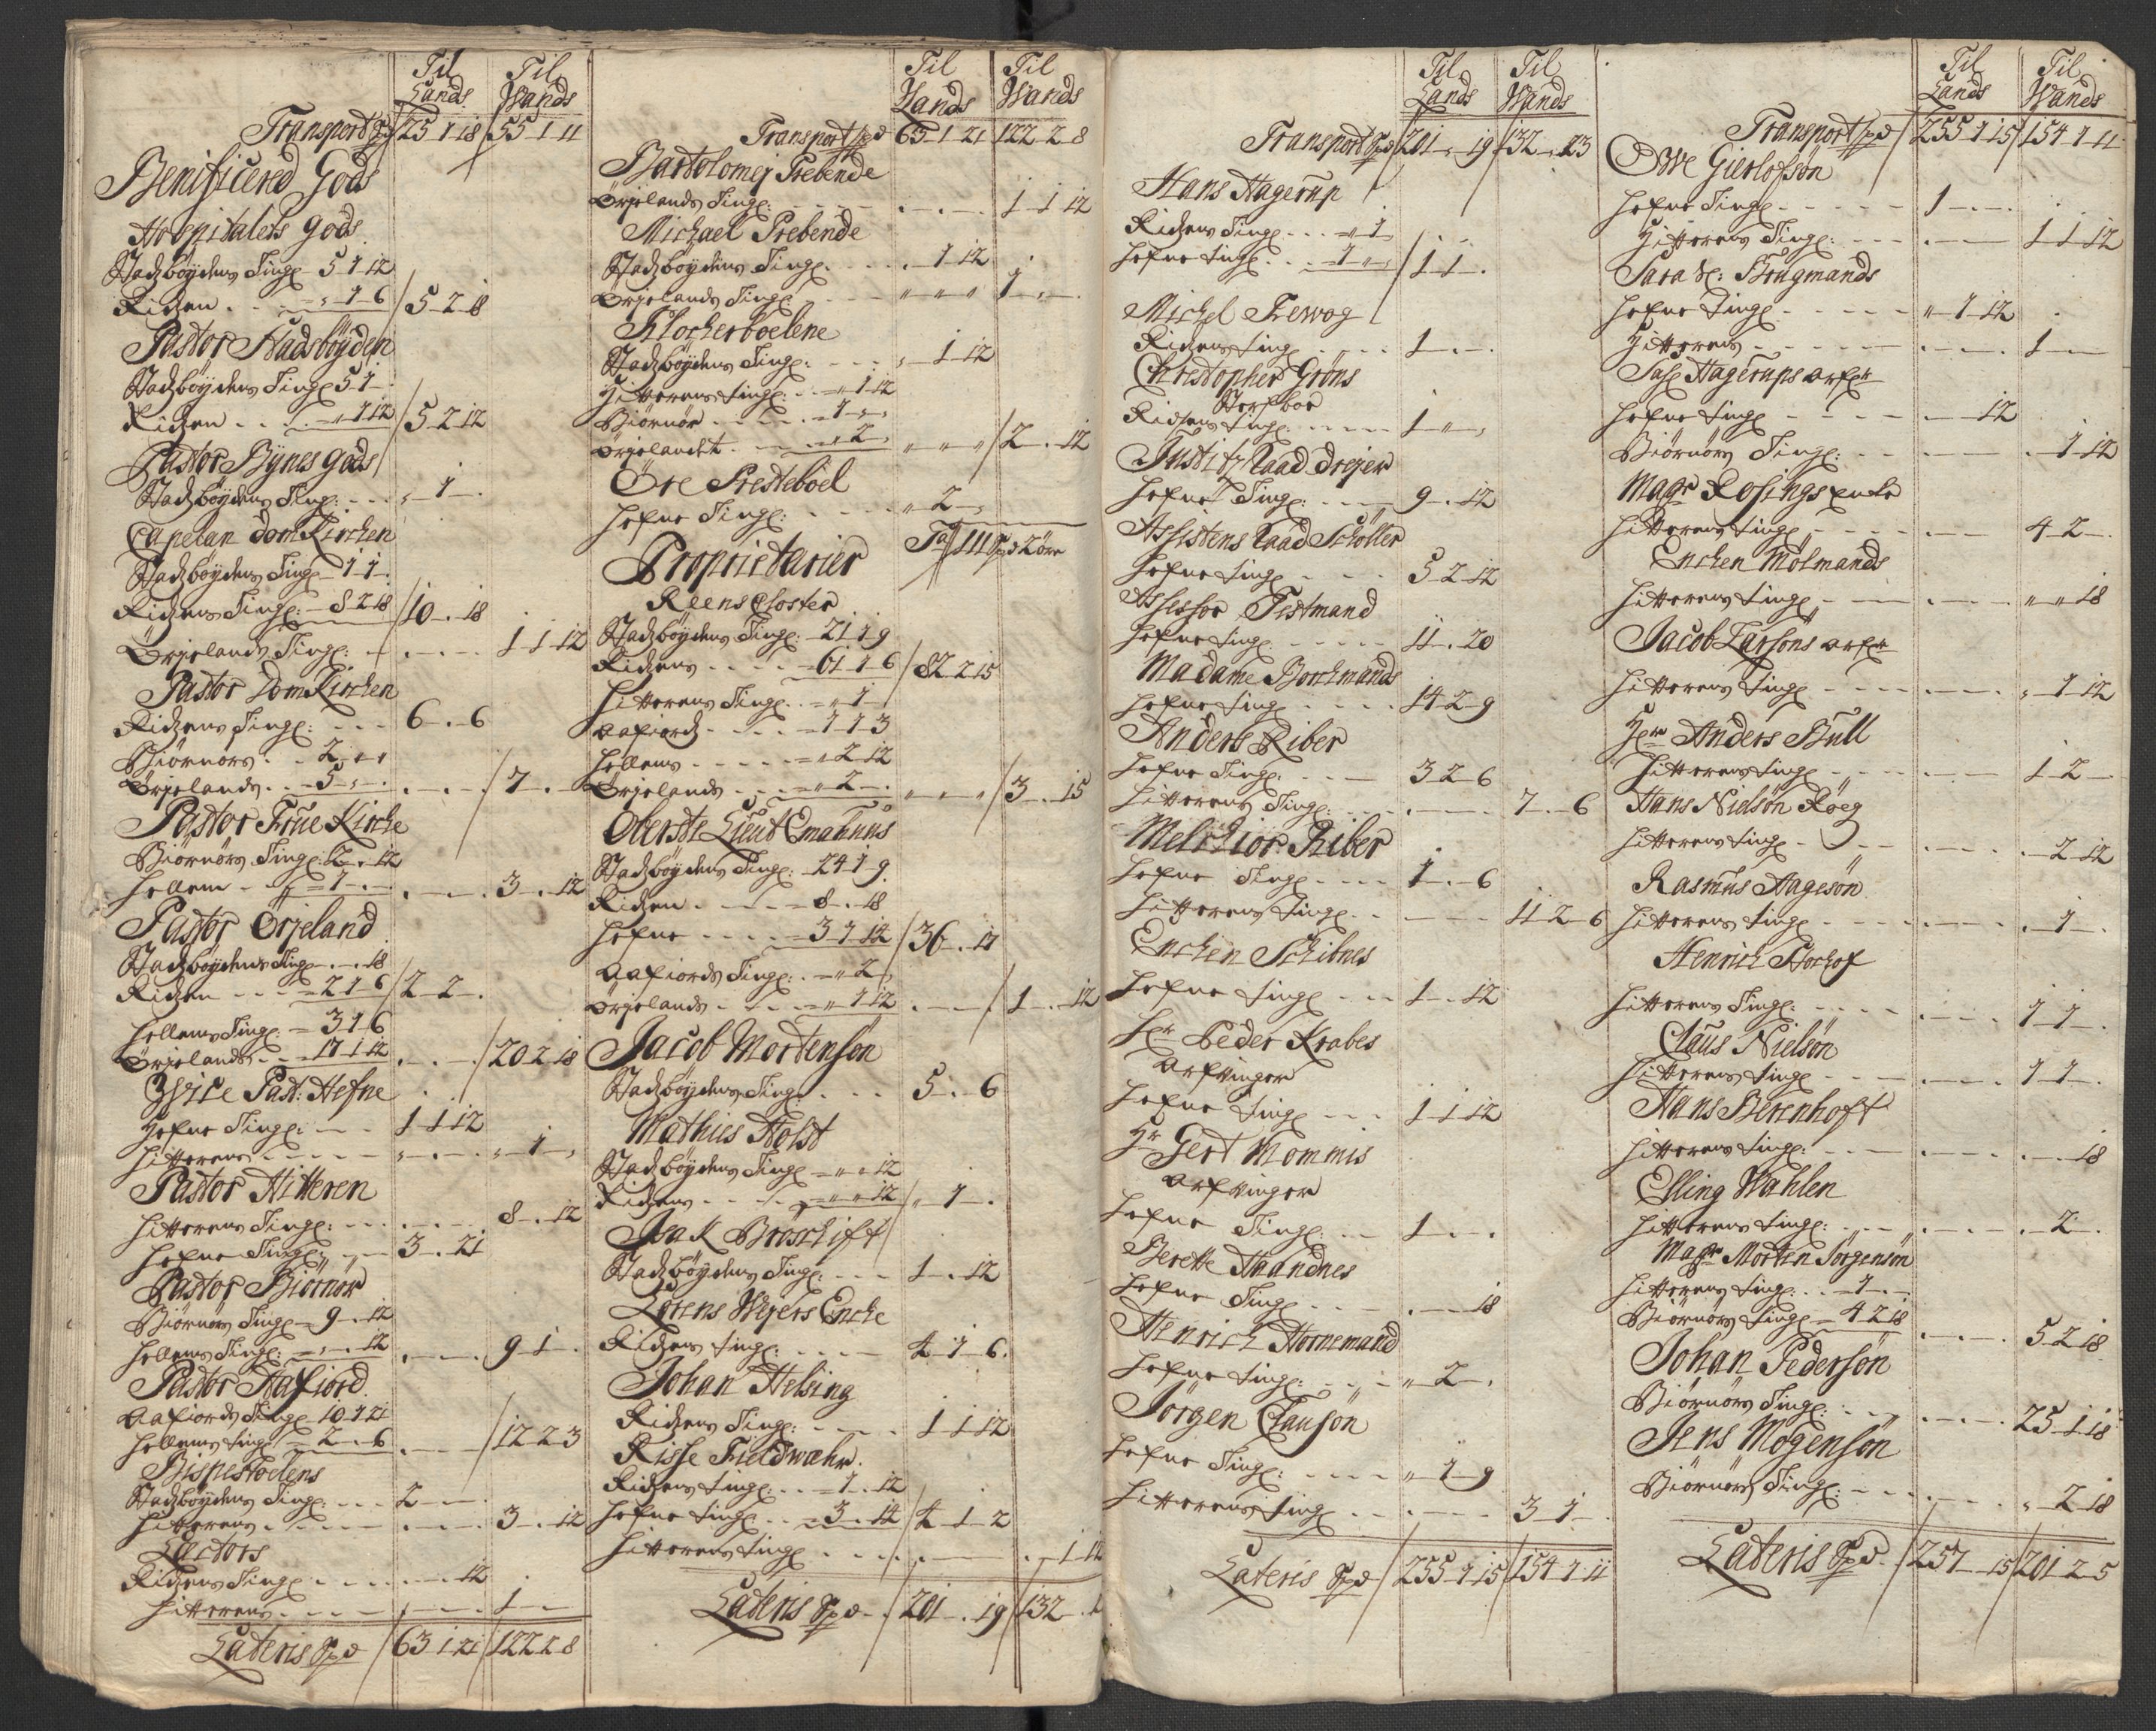 Til Lands Til Wands
Transport Spd 25-1-18 55-1-11
Benificered Gods
Hospitalets gods
Stadsbøydens Tingl 5-1-12
Rizen - 1-6 5-2-18
Pastor Stadsbøyden
Stadsbøydens Tingl 5-1-
Rizen - 1-12 5-2-12
Pastor Bynes gods
Stadsbøydens Tingl: - 1 -
Capelan Dom Kirchen
Stadsbøydens Tingl 1-1-
Rizens Tingl: 8-2-18 10-.-18
Ørjelands Tingl: 1-1-12
Pastor Dom Kirchen
Rizens Tingl: 6-.-6
Biørnørs 2
Ørjelands 5 7-.
Pastor Frue Kirche
Biørnørs Tingl: 2-.-12
Hellem 1 3-.-12
Pastor Ørjeland
Stadsbøydens Tingl -.-18
Rizen 2-1-6 2-2-.
Hellems Tingl: 3-1-6
Ørjelands 17-1-12 20-2-18
Vice Past: Hefne
Hefne Tingl: 1-1-12
Hitterens - 1 -
Pastor Hitteren
Hitterens Tingl: 8-.-12
Hefne Tingl: 3-.-21
Pastor Biørnør
Biørnørs Tingl 9-.-12
Hellems Tingl: -.-12 9-1-.
Pastor Aafiord
Aafiords Tingl 10-1-21
Hellems Tingl 2-.-6 12-2-3
Bispestoelens
Stadsbøydens Tingl: 2-
Hitterens 3-.-12
Lectors
Rizens Tingl -12
Hitterens 1-
Lateris Spd 63-1-21 122-2-8
Til Lands Til Wands
Transport Spd 63-1-21 122-2-8
Bartolomej Prebende
Ørjelands Tingl: 1-1-12
Michael Prebende
Stadsbøydens Tingl. -1-12
Ørjelands Tingl: 1-.-
Klocherboelene
Stadsbøydens Tingl: -1-12
Hitterens Tingl: 1-12
Biørnør 1
Ørjelandet 2 2-.-12
Øre Presteboel
Hefne Tingl: 2
Proprietarier
Reens Closter
Stadsbøydens Tingl: 21-1-9
Rizens 61-1-6 82-2-15
Hitterens Tingl. 1
Aafiords 1-1-3
Hellems 2-12
Ørjelands 2 3-.-15
Oberste Lieut Emahuus
Stadsbøydens Tingl: 24-1-9
Rizen 8-.-18
Hefne 3-1-14 36-.-17
Aafiords Tingl: 2
Ørjelands 1-12 1-.-12
Jacob Mortensøn
Stadsbøydens Tingl: 5-.-6
Mathies Holst
Stadsbøydens Tingl 12
Rizens 12 1-.
Isak Brøschift
Stadsbøydens Tingl: 1-.-12
Lorens Wejers Enche
Rizens Tingl: 4-1-6
Johan Helsing
Rizens Tingl: 1-1-12
Risse Fieldwæhr
Rizens Tingl: 1-.-12
Hefne Tingl 3-.-14 4-1-2
Hitterens Tingl
Lateris Spd 201-.-19 132-
Til Lands Til Wands
Transport Spd 201-.-19 132-.-23
Hans Hagerup
Rizens Tingl 1
Hefne Tingl 1 1-1-.
Michel Trewog
Rizens Tingl 1-.-
Christopher Grøns
Sterfboe
Rizens Tingl: 1
Justitz Raad Drejer
Hefne Tingl: 9-.-12
Assistens Raad Schøller
Hefne Tingl 5-2-12
Assessor Testmand
Hefne Tingl: 11-.-20
Madame Borchmands
Hefne Tingl 14-2-9
Anders Riber
Hefne Tingl: 3-2-6
Hitterens Tingl: 7-.-6
Melchior Riber
Hefne Tingl 1-.-6
Hitterens Tingl: 11-2-6
Enchen Schibnes
Hefne Tingl 1-.-12
Hr Peder Krabes
Arfvinger
Hefne Tingl 1-1-12
Hr Gert Mommis
Arfvinger
Hefne Tingl: 1-.-.
Berette Haandnes
Hefne Tingl -18
Henrich Hornemand
Hefne Tingl: 2-.
Jørgen Clausøn
Hefne Tingl: 1-9
Hitterens Tingl 3-1-
Lateris Spd 255-1-15 154-1-11
Til Lands Til Wands
Transport Spd 255-1-15 154-1-11
Ove Gierlofsøn
Hefne Tingl 1
Hitterens Tingl: 1-1-12
Sara Sl: Brugmands
Hefne Tingl 1-12
Hitterens 1-
Sase Hagerups Arfr
Hefne Tingl -12
Biørnørs Tingl: -1-12
Magr Rosings Enke
Hitterens Tingl 4-2-.
Enchen Mølmands
Hitterens Tingl 18
Jacob Larsøns Arfr
Hitterens Tingl 1-12
Hr Anders Bull
Hitterens Tingl 1-2-
Hans Nielsøn Røeg
Hitterens Tingl 2-12
Rasmus Aagesøn
Hitterens Tingl -1-.
Henrich Storhof
Hitterens Tingl: 1-1-.
Claus Nielsøn
Hitterens Tingl 1-1-.
Hans Berenhoft
Hitterens Tingl: 18
Elling Wahlen
Hitterens Tingl: -2-.
Magr Morten Jørgensøn
Hitterens Tingl: 1
Biørnørs Tingl 4-2-18 5-2-18
Johan Pedersøn
Biørnørs Tingl: 25-1-18
Jens Mogensøn
Biørnørs Tingl: 2-18
Lateris Spd 257-15 201-2-5